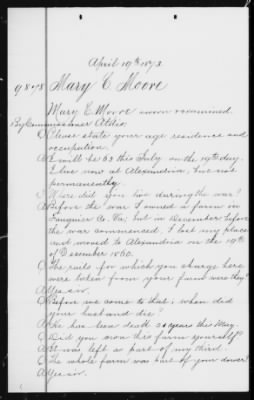 April 19th 1873.
9878 Mary E Moore
Mary E. Moore sworn & examined.
By Commissioner Aldis.
Q Please state your age residence and
occupation.
A I will be 63 this July on the 19th day.
I live now at Alexandria, but not
permanently.
Q Where did you live during the war?
A Before the war I owned a farm in
Fauquier Co. Va, but in December before
the war commenced, I left my place
and moved to Alexandria on the 19th
of December 1860.
Q The rails for which you charge here
were taken from your farm were they?
A Yes sir.
Q Before we come to that; when did
your husband die?
A He has been dead years this May.
Q Did you own this farm yourself?
A It was left a part of my third.
Q The whole farm was part of your dower?
A Yes sir.